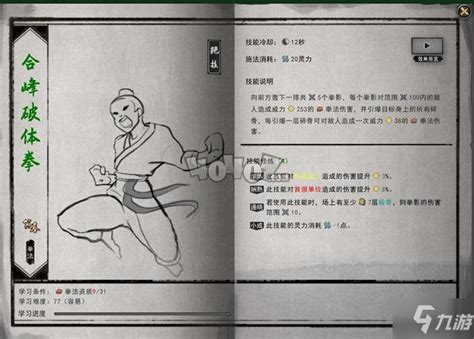 合峰破体拳
绝技
拳法
学习条件：拳法资质9/31
学习难度：77（容易）
技能冷却：12秒
施法消耗：20灵力
效果预览
技能说明
向前方轰下一排共5个拳影，每个拳影对范围100内的敌
人造成威力253的拳法伤害，并引爆目标身上的所有碎
骨，每引爆一层碎骨可对敌人造成一次威力38的拳法伤
害。
此技能对
造成的伤害提升3%。
娴熟
此技能对首领单位造成的伤害提升8%。
若使用此技能时，场上有至少7层碎骨，则拳影的伤害
范围10。
小成
此技能的灵力消耗-1点。
九游